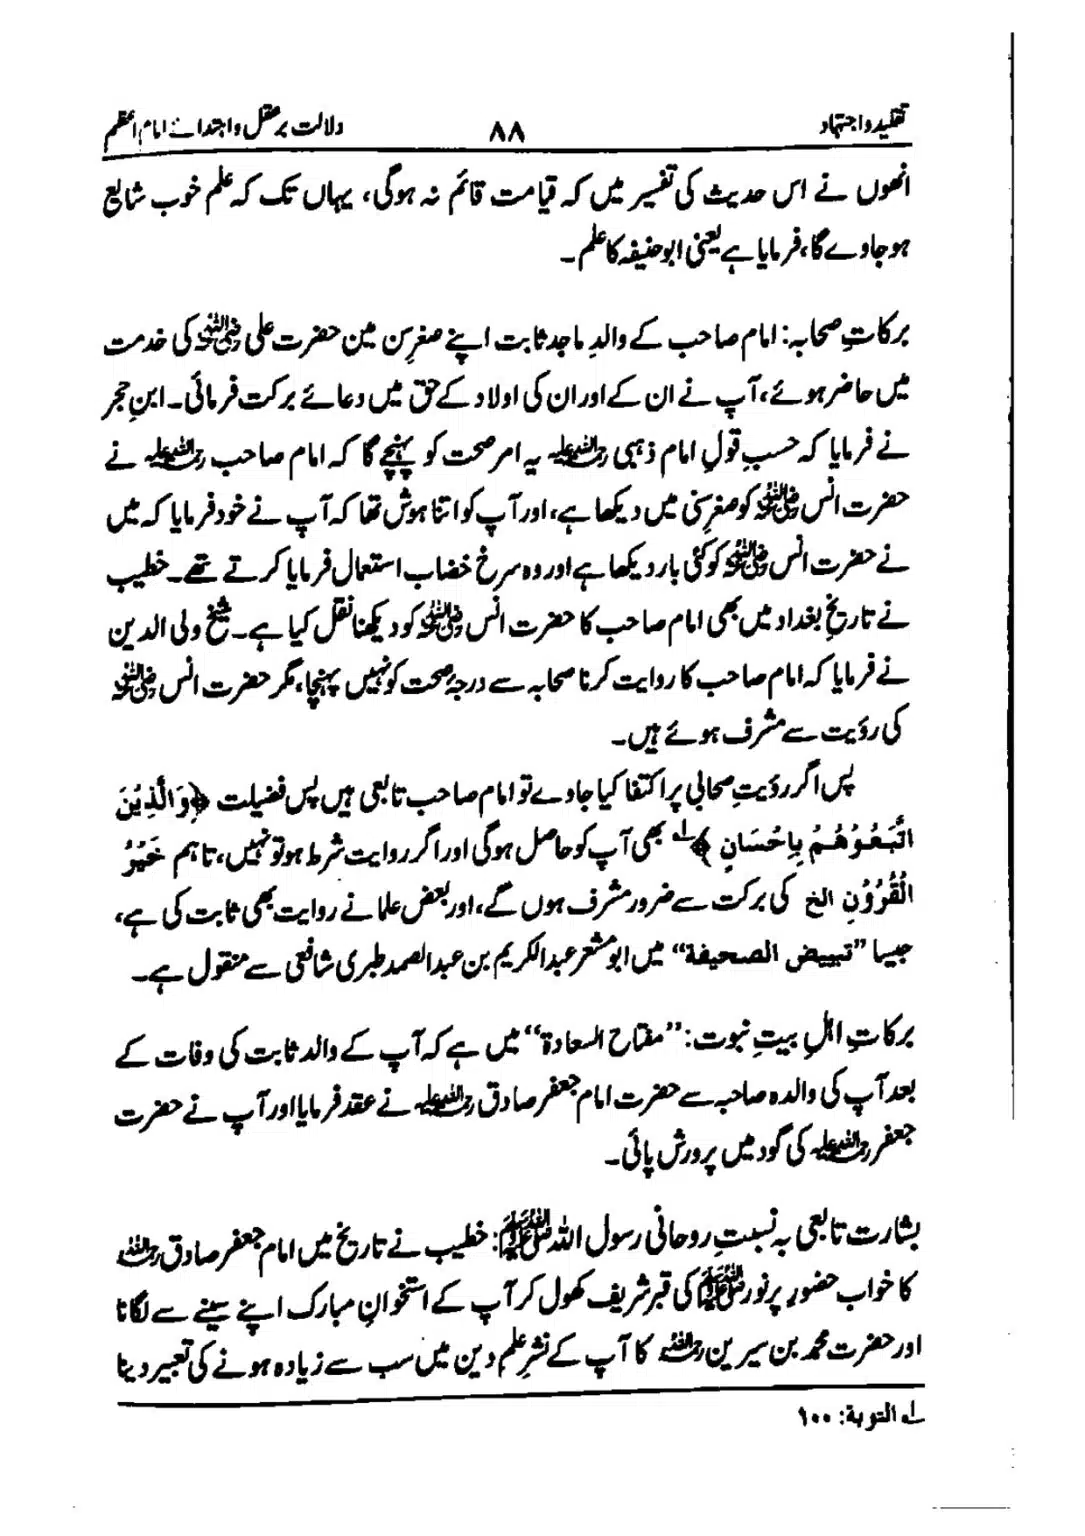 تقلید و اجتہاد ۸۸ دلالت بر عقل و اجتدائے امام اعظم
انھوں نے اس حدیث کی تفسیر میں کہ قیامت قائم نہ ہوگی، یہاں تک کہ علم خوب شایع
ہو جاوے گا، فرمایا ہے یعنی ابو حنیفہ کا علم۔
برکاتِ صحابہ: امام صاحب کے والدِ ماجد ثابت اپنے صغرِ سن مین حضرت علی رضی اللہ عنہ کی خدمت
میں حاضر ہوئے، آپ نے ان کے اور ان کی اولاد کے حق میں دعائے برکت فرمائی۔ ابنِ حجر
نے فرمایا کہ حسبِ قولِ امام ذہبی رحمۃ اللہ علیہ یہ امر صحت کو پہنچے گا کہ امام صاحب رحمۃ اللہ علیہ نے
حضرت انس رضی اللہ عنہ کو صغرِ سنی میں دیکھا ہے، اور آپ کو اتنا ہوش تھا کہ آپ نے خود فرمایا کہ میں
نے حضرت انس رضی اللہ عنہ کو کئی بار دیکھا ہے اور وہ سرخ خضاب استعمال فرمایا کرتے تھے۔ خطیب
نے تاریخِ بغداد میں بھی امام صاحب کا حضرت انس رضی اللہ عنہ کو دیکھنا نقل کیا ہے۔ شیخ ولی الدین
نے فرمایا کہ امام صاحب کا روایت کرنا صحابہ سے درجۂ صحت کو نہیں پہنچا، مگر حضرت انس رضی اللہ عنہ
کی رؤیت سے مشرف ہوئے ہیں۔
پس اگر رؤیتِ صحابی پر اکتفا کیا جاوے تو امام صاحب تابعی ہیں پس فضیلت ﴿وَالَّذِيْنَ
اتَّبَعُوْهُمْ بِاِحْسَانٍ﴾ۓ۱ بھی آپ کو حاصل ہوگی اور اگر روایت شرط ہو تو نہیں، تاہم خَيْرُ
الْقُرُوْنِ الخ کی برکت سے ضرور مشرف ہوں گے، اور بعض علما نے روایت بھی ثابت کی ہے،
جیسا ”تبييض الصحيفة“ میں ابو معشر عبدالکریم بن عبدالصمد طبری شافعی سے منقول ہے۔
برکاتِ اہلِ بیتِ نبوت: ”مفتاح السعادة“ میں ہے کہ آپ کے والد ثابت کی وفات کے
بعد آپ کی والدہ صاحبہ سے حضرت امام جعفر صادق رحمۃ اللہ علیہ نے عقد فرمایا اور آپ نے حضرت
جعفر رحمۃ اللہ علیہ کی گود میں پرورش پائی۔
بشارت تابعی بہ نسبتِ روحانی رسول اللہ ﷺ: خطیب نے تاریخ میں امام جعفر صادق رحمۃ اللہ
کا خواب حضور پرنور ﷺ کی قبر شریف کھول کر آپ کے استخوانِ مبارک اپنے سینے سے لگانا
اور حضرت محمد بن سیرین رحمۃ اللہ کا آپ کے نشرِ علم دین میں سب سے زیادہ ہونے کی تعبیر دینا
لـه التوبة: ۱۰۰